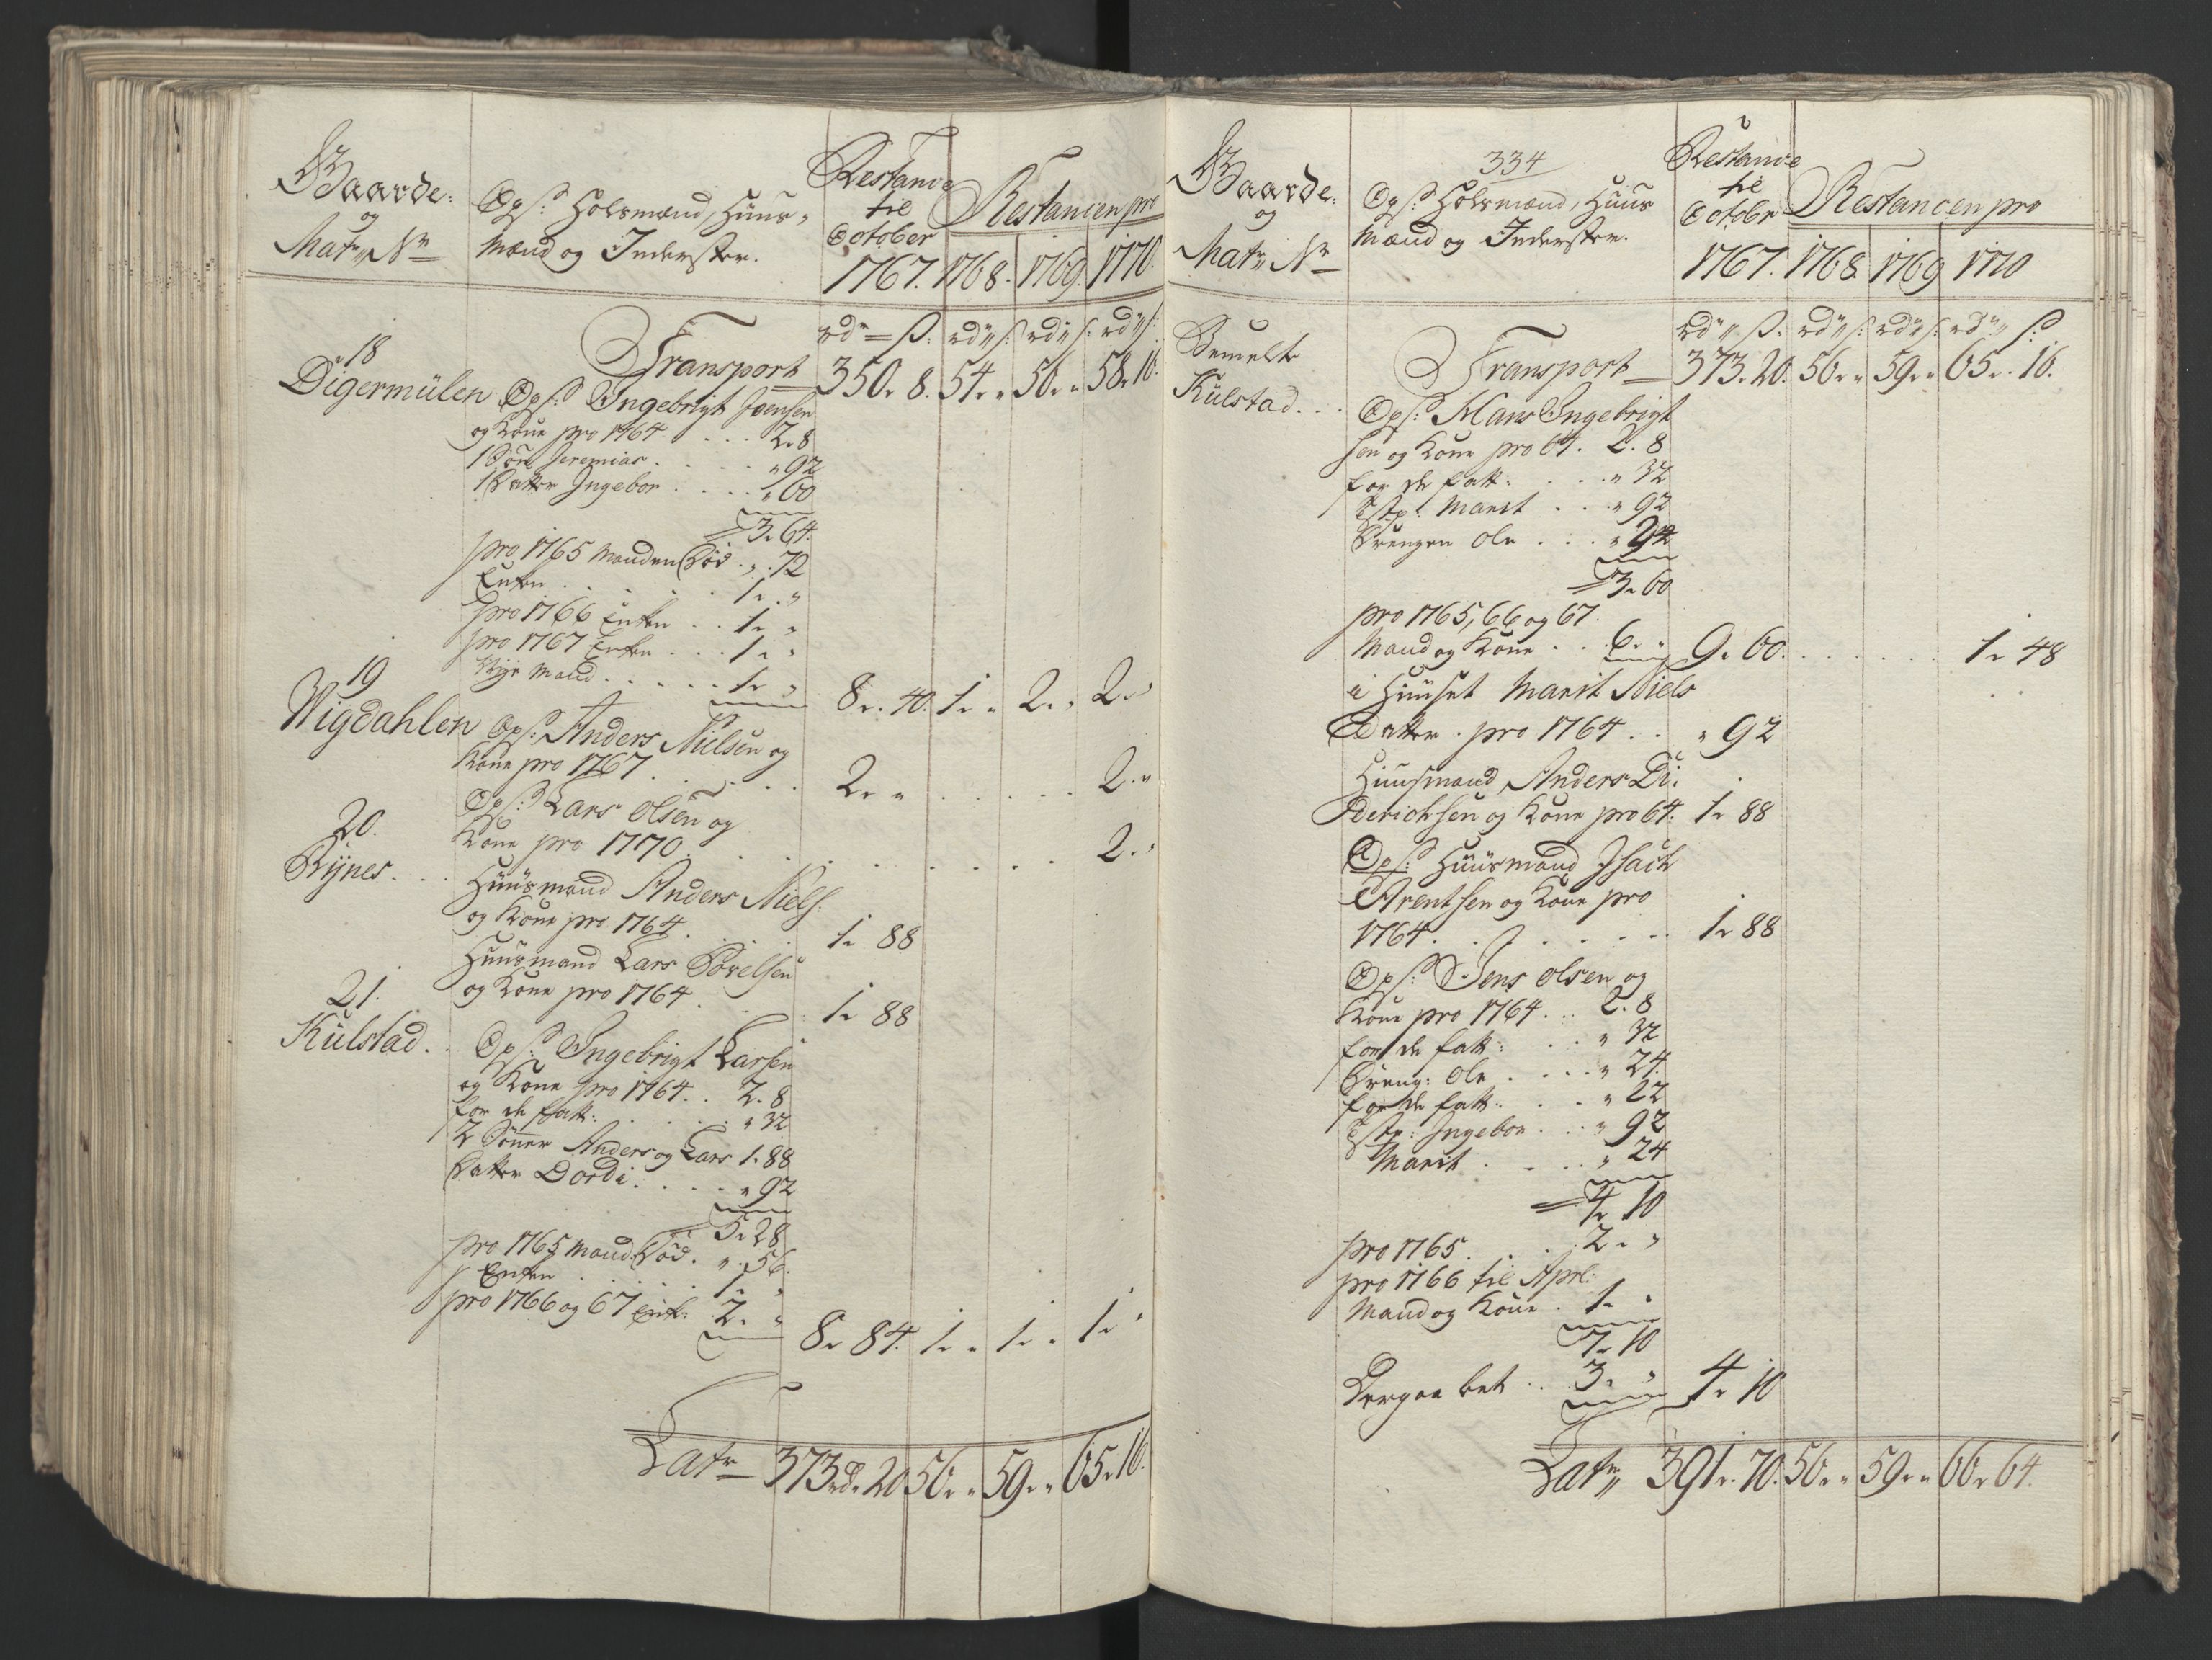 Gaarde
og
Mat: No
Ops: Holsmænd, Huus-
Mænd og Inderster.
Restance
til
October
1767.
Restancen pro
1768. 1769. 1770.
rdr ß: rdr ß: rdr ß: rdr ß:
Transport 350. 8. 54. " 56. " 58. 16.
18
Digermülen
Ops: Ingebrigt Joensen
og Kone pro 1764 . . . 2. 8
1 Søn Jeremias . . . . " 92
1 Datter Ingebor . . . . " 60
3. 64.
pro 1765 Manden Død . " 72
Enken . . . . . 1. "
pro 1766 Enken . . 1. "
pro 1767 Enken . . . 1. "
Nye Mand . . . . . 1. " 8. 40. 1. " 2. " 2. "
19
Wigdahlen
Ops: Anders Nielsen og
Kone pro 1767 . . . . . 2. " . . . . . 2. "
Ops: Lars Olsen og
Kone pro 1770 . . . . . . . . . 2. "
20.
Rÿnes . . .
Huusmand Anders Niels:
og Kone pro 1764 . . . . 1. 88
Huusmand Lars
og Kone pro 1764 . . . 1. 88
21.
Kulstad . .
Ops: Ingebrigt Larsen
og Kone pro 1764 . . 2. 8
for de fatt: . . . . . " 32
2 Sönner Anders og Lars 1. 88
Datter Dordi . . . . " 92
5. 28
pro 1765 Mand: Død . " 56.
Enken . . . . . 1. "
pro 1766 og 67 Enk: 2. " 8. 84. 1. " 1. " 1. "
Latr 373 rd. 20 56. " 59. " 65. 16.
334
Gaarde
og
Mat: No
Ops: Holsmænd, Huus
Mænd og Inderster.
Restance
til
Octobr
1767.
Restancen pro
1768. 1769 1770
rdr ß: rdr ß: rdr ß: rdr ß:
Transport 373. 20. 56. " 59. " 65. 16.
Bemelte
Kulstad . . .
Ops: Hans Ingebrigt
sen og Kone pro 64. 2. 8
for de fatt: . . . " 32
Tstp: Marit . . . " 92
Drengen Ole . . . " 24
3. 60
pro 1765, 66 og 67.
Mand og Kone . . . 6. " 9. 60. . . . . . . 1. 48
i Huuset Marit Niels
Datter . pro 1764 . . " 92
Huusmand Anders Di:
derichsen og Kone pro 64: 1. 88
Ops: Huusmand Isach
Arentsen og Kone pro
1764 . . . . . . . 1. 88
Ops: Jens Olsen og
Kone pro 1764 . . . 2. 8
for de fatt: . . " 32
Dreng: Ole . . . . " 24.
for de fatt: . . " 22
Tstp: Ingebor . . . " 92
Marit . . . . " 24
4. 10
pro 1765 . . . . 2. "
pro 1766 til Aprl:
Mand og Kone . 1. "
7. 10
Derpaa bet . . 3. " 4. 10
Latr 391. 70. 56. " 59. " 66. 64.